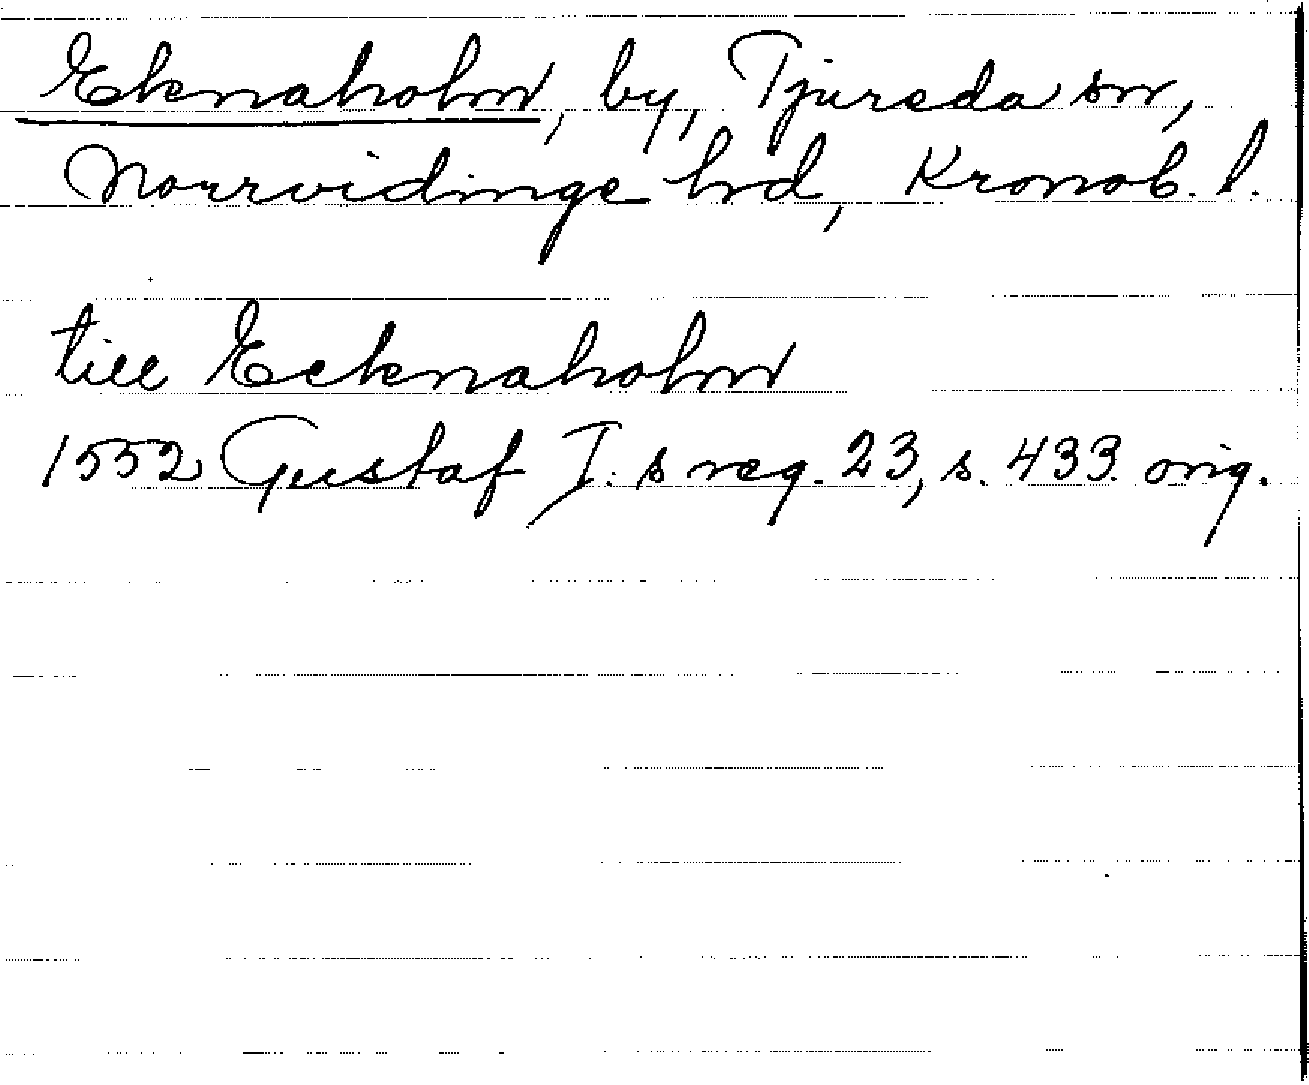 Eknaholm, by, Tjureda sn,
Norrvidinge hd, Kronob. l.
till Ecknaholm
1552 Gustaf I: s reg. 23, s. 433. orig.